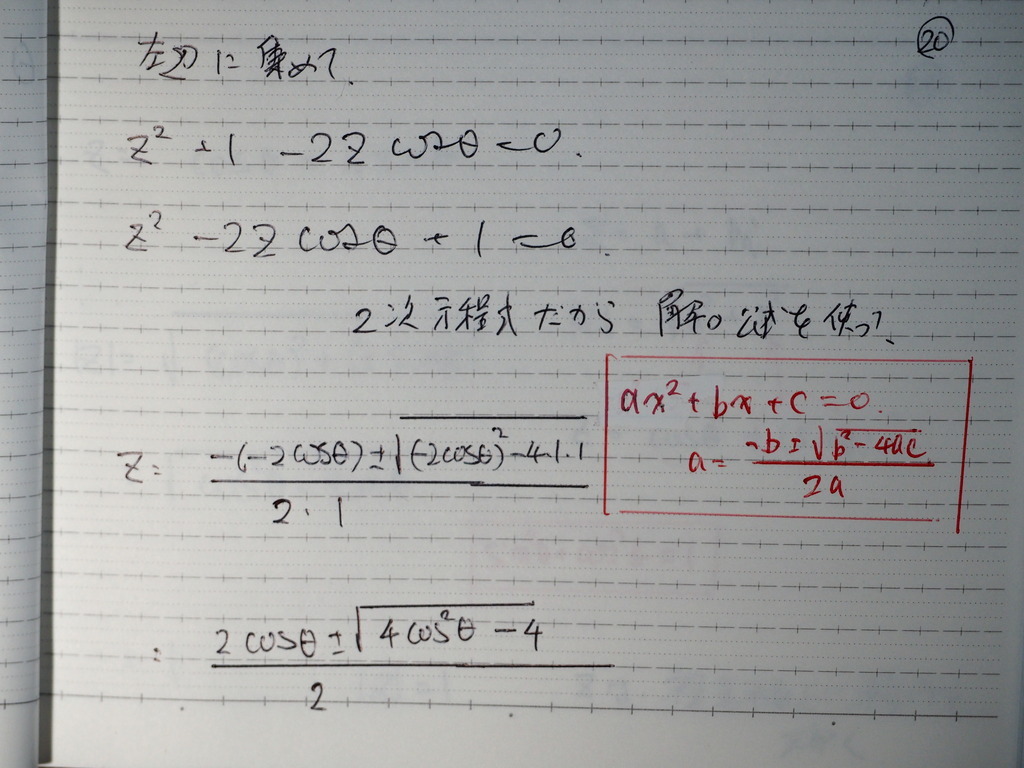 ⑳
左辺に集めて、
z² + 1 - 2z cosθ = 0.
z² - 2z cosθ + 1 = 0.
2次方程式だから 解の公式を使って、
ax² + bx + c = 0.
a = (-b ± √(b² - 4ac)) / 2a
z = (-(-2cosθ) ± √((-2cosθ)² - 4・1・1)) / (2・1)
: (2cosθ ± √(4cos²θ - 4)) / 2